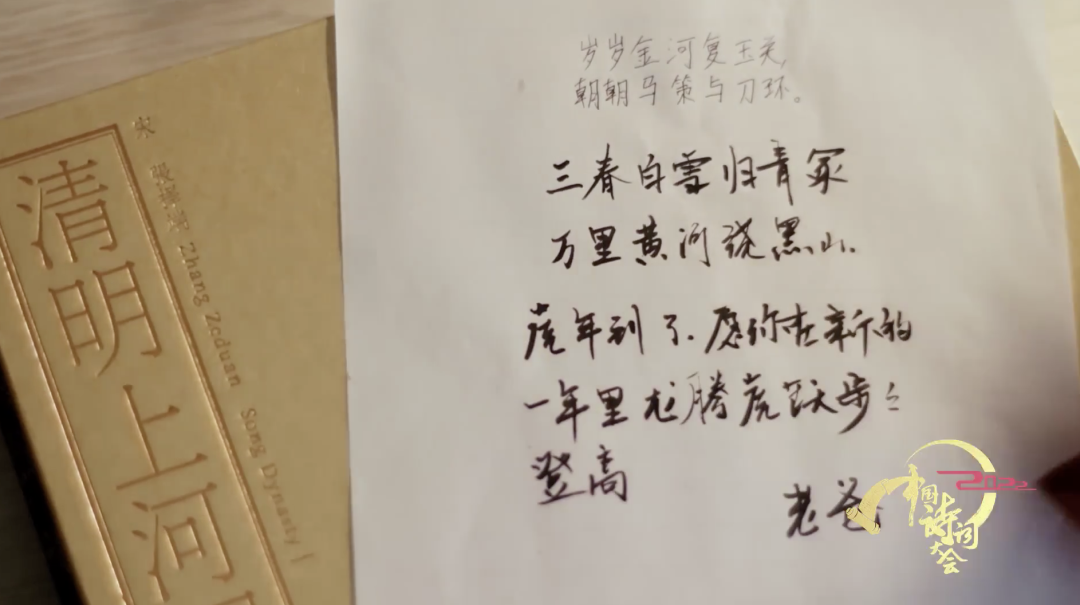 岁岁金河复玉关,
朝朝马策与刀环。
三春白雪归青冢
万里黄河绕黑山.
虎年到了.愿你在新的
一年里龙腾虎跃步々
登高
老爸
清明上河
宋
Zhang Zeduan Song Dynasty
中国诗词大会